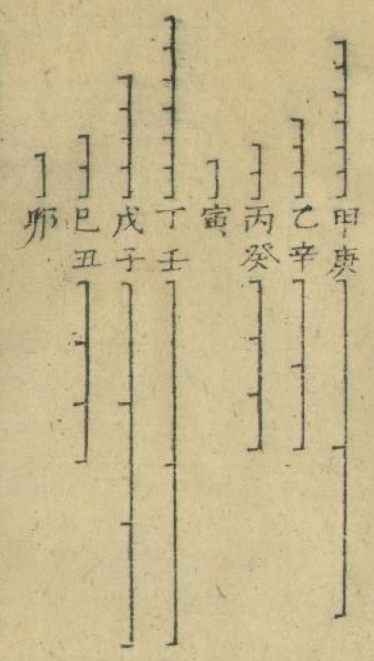 甲庚
乙辛
丙癸
寅
丁壬
戊子
巳丑
卯